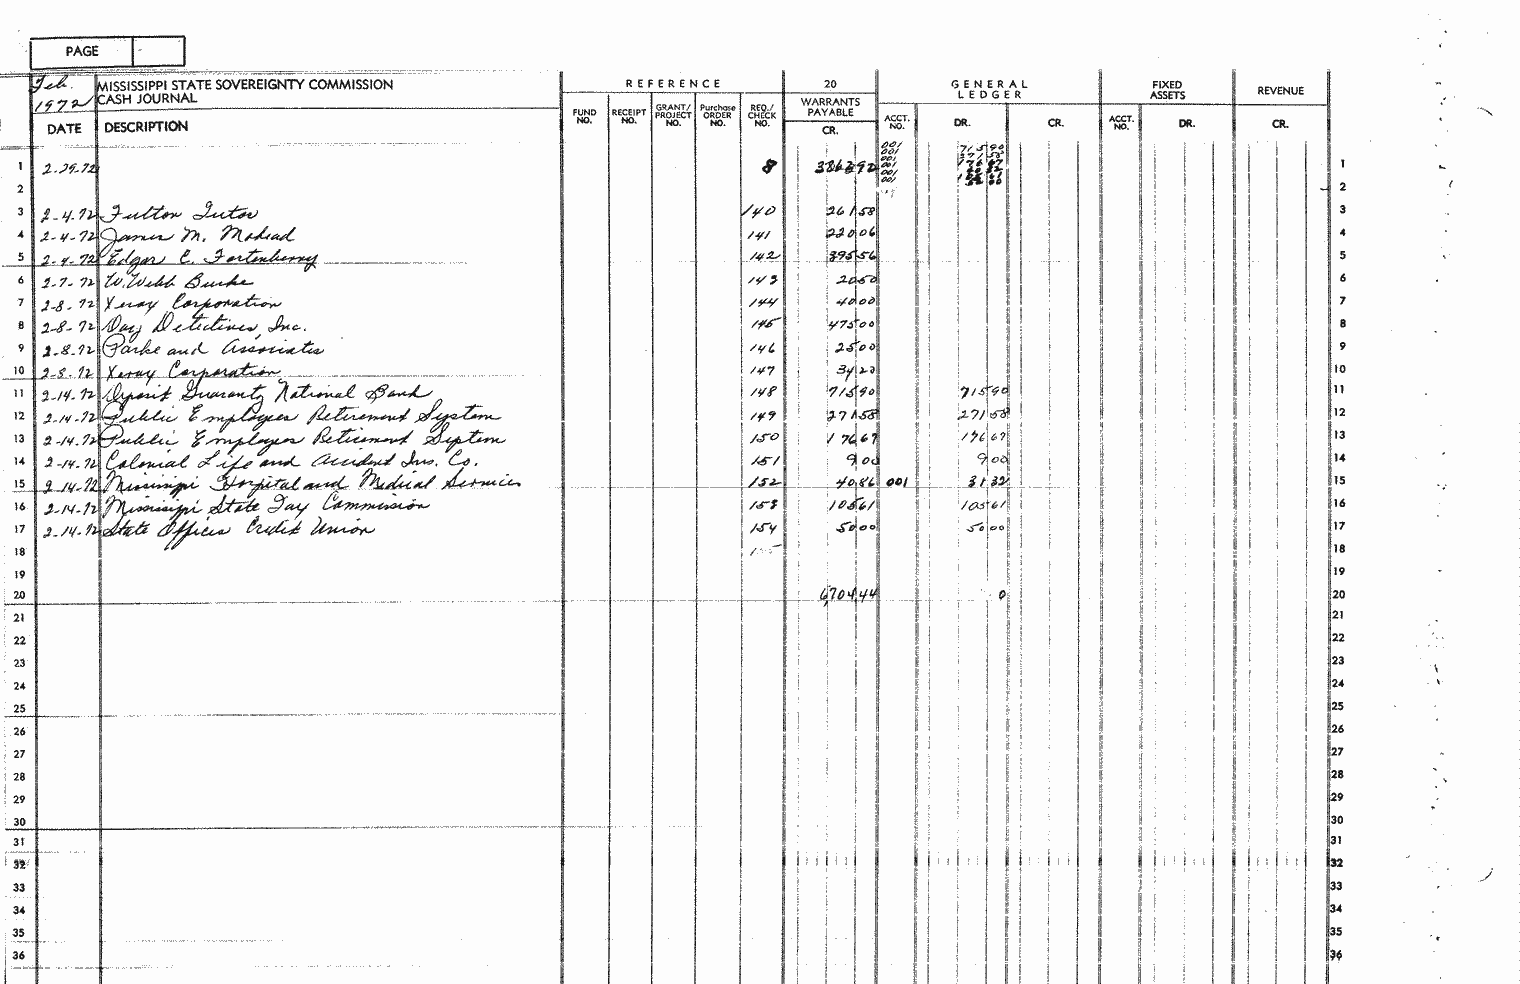 PAGE
Feb. 1972 MISSISSIPPI STATE SOVEREIGNTY COMMISSION CASH JOURNAL
REFERENCE 20 GENERAL LEDGER FIXED ASSETS REVENUE
DATE DESCRIPTION FUND NO. RECEIPT NO. GRANT/PROJECT NO. Purchase ORDER NO. REQ./CHECK NO. WARRANTS PAYABLE CR. ACCT. NO. DR. CR. ACCT. NO. DR. DR. CR.
001 715 90
001 271 58
001
001
001
001 50 00
1 2-29-72 8 3862 92 1
2 2
3 2-4-72 Fulton Tutor 140 261 58 3
4 2-4-72 James M. Mohead 141 220 06 4
5 2-4-72 Edgar C. Fortenberry 142 395 56 5
6 2-7-72 W. Webb Burke 143 20 50 6
7 2-8-72 Xerox Corporation 144 40 00 7
8 2-8-72 Day Detectives, Inc. 145 475 00 8
9 2-8-72 Parke and Associates 146 25 00 9
10 2-8-72 Xerox Corporation 147 34 20 10
11 2-14-72 Deposit Guaranty National Bank 148 715 90 715 90 11
12 2-14-72 Public Employees Retirement System 149 271 58 271 58 12
13 2-14-72 Public Employees Retirement System 150 176 67 176 67 13
14 2-14-72 Colonial Life and Accident Ins. Co. 151 9 00 9 00 14
15 2-14-72 Mississippi Hospital and Medical Services 152 40 86 001 31 32 15
16 2-14-72 Mississippi State Tax Commission 153 105 61 105 61 16
17 2-14-72 State Offices Credit Union 154 50 00 50 00 17
18 155 18
19 19
20 6,704 44 0 20
21 21
22 22
23 23
24 24
25 25
26 26
27 27
28 28
29 29
30 30
31 31
32 32
33 33
34 34
35 35
36 36